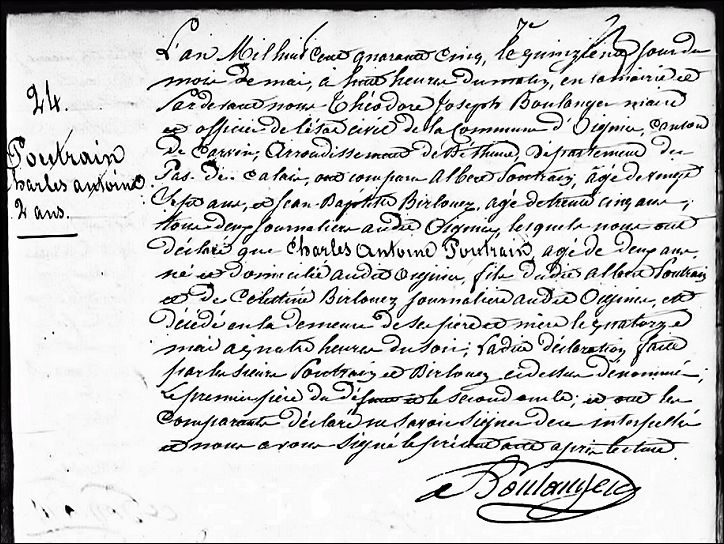 7e
L'an Mil huit cent quarante cinq, le quinzième jour du
mois de mai, à huit heures du matin, en la mairie et
Pardevant nous Théodore Joseph Boulanger maire
et officier de l'état civil de la Commune d'Oignies, canton
de Carvin, Arrondissement de Béthune, Département du
Pas-de-Calais, ont comparu Albert Poutrain, âgé de vingt
Sept ans, et Jean-Baptiste Birlouez, âgé de trente cinq ans,
tous deux Journaliers audit Oignies, lesquels nous ont
déclaré que Charles Antoine Poutrain, âgé de deux ans,
né et domicilié audit Oignies, fils dudit Albert Poutrain
et de Célestine Birlouez journalière audit Oignies, est
décédé en la demeure de ses père et mère le quatorze
mai à quatre heures du soir; Ladite déclaration faite
par les sieurs Poutrain et Birlouez ci-dessus dénommés;
Le premier père du défunt et le second oncle; et ont les
Comparants déclaré ne savoir signer de ce interpellés
et nous avons Signé le présent acte après lecture.
24.
Poutrain
Charles antoine
2 ans.
Boulanger